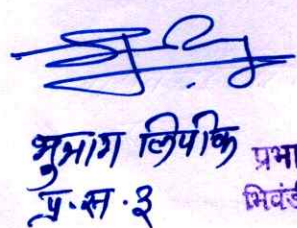 भुभाग लिपीक
प्र.स.३
प्रभा
भिवंडी